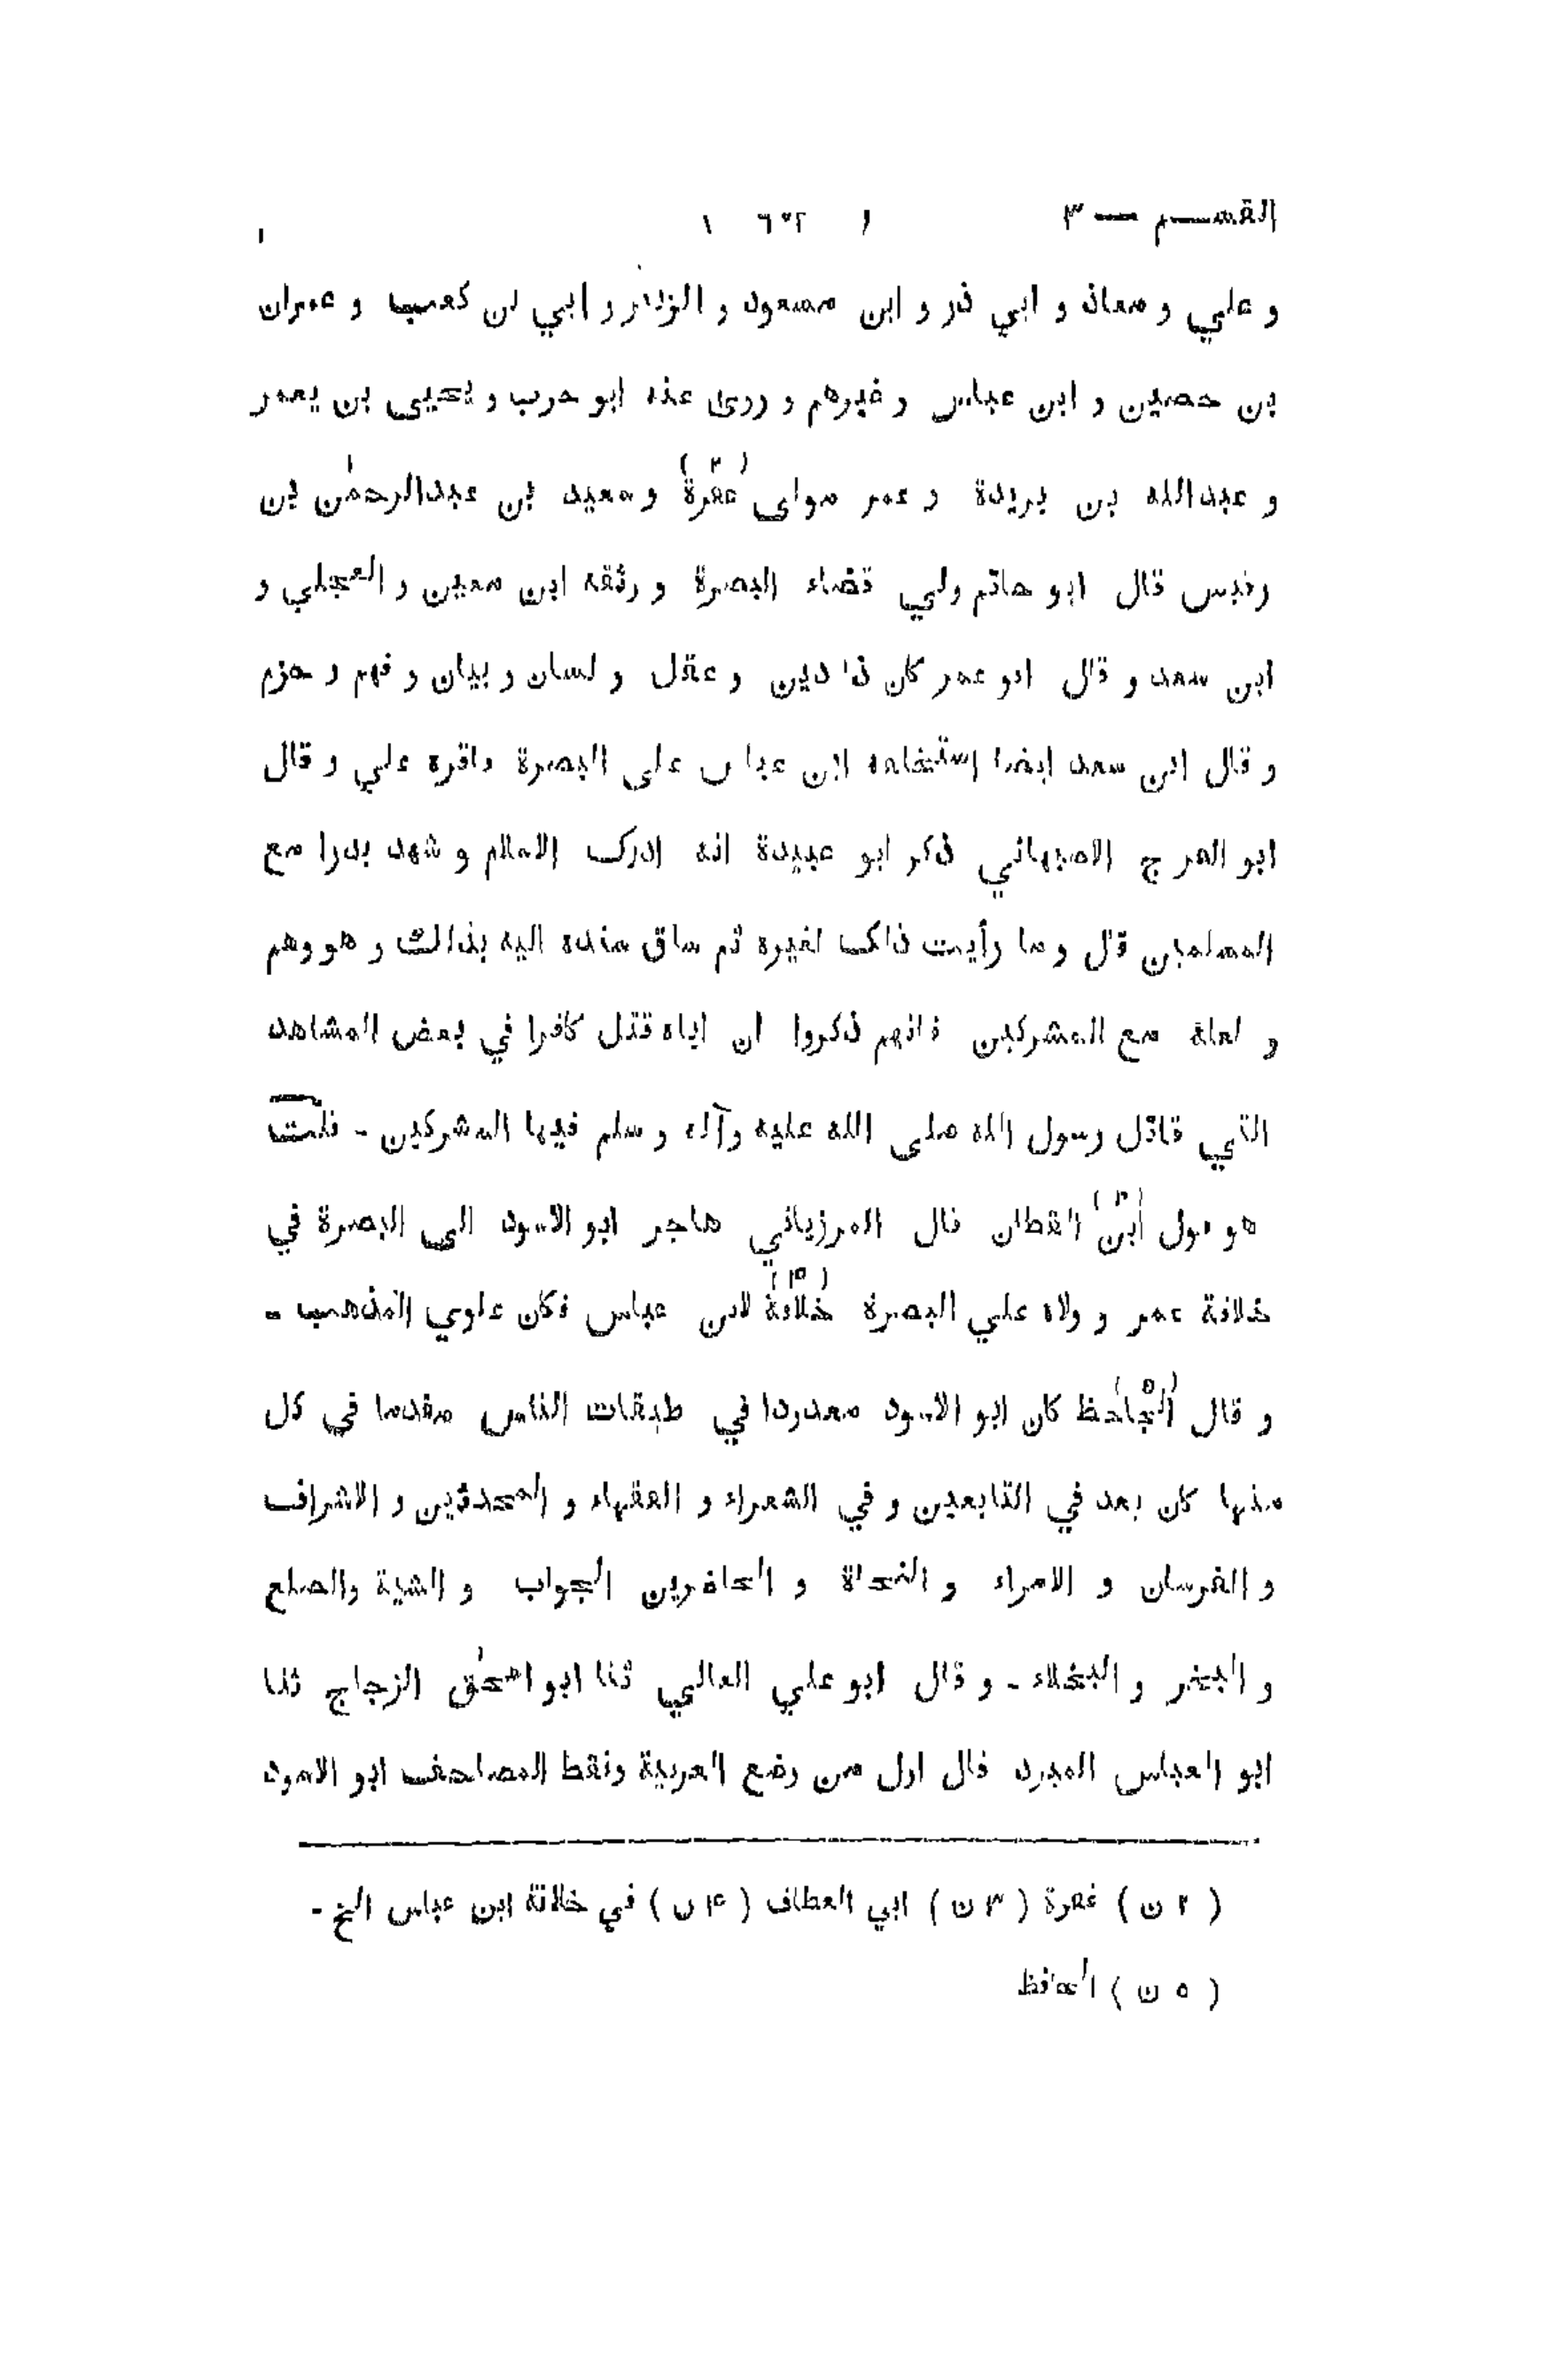 القسم — ٣ ( ٦٣٢ )
و علي و معاذ و ابي ذر و ابن مسعود و الزبير و ابي بن كعب و عمران
بن حصين و ابن عباس و غيرهم و روى عنه ابو حرب و يحيى بن يعمر
و عبدالله بن بريدة و عمر مولى عفرة (٢) و سعيد بن عبدالرحمٰن بن
رقيس قال ابو حاتم ولي قضاء البصرة و وثقه ابن معين و العجلي و
ابن سعد و قال ابو عمر كان ذا دين و عقل و لسان و بيان و فهم و حزم
و قال ابن سعد ايضا استخلفه ابن عباس على البصرة فاقره علي و قال
ابو الفرج الاصبهاني ذكر ابو عبيدة انه ادرك الاسلام و شهد بدرا مع
المسلمين قال و ما رأيت ذلك لغيره ثم ساق سنده اليه بذالك و هو وهم
و لعله مع المشركين فانهم ذكروا ان اباه قتل كافرا في بعض المشاهد
التي قاتل رسول الله صلى الله عليه وآله و سلم فيها المشركين - قلت
هو قول ابن (٣) القطان قال المرزباني هاجر ابو الاسود الى البصرة في
خلافة عمر و ولاه علي البصرة خلافة (۴) لابن عباس فكان علوي المذهب -
و قال الجاحظ (٥) كان ابو الاسود معدودا في طبقات الناس مقدما في كل
منها كان يعد في التابعين و في الشعراء و الفقهاء و المحدثين و الاشراف
و الفرسان و الامراء و النحاة و الحاضرين الجواب و الشيعة والصلع
و البخر و البخلاء - و قال ابو علي القالي ثنا ابو اسحٰق الزجاج ثنا
ابو العباس المبرد قال اول من وضع العربية ونقط المصاحف ابو الاسود
( ٢ ن ) غفرة ( ٣ ن ) ابي العطاف ( ۴ ن ) في خلافة ابن عباس الخ -
( ٥ ن ) الحافظ